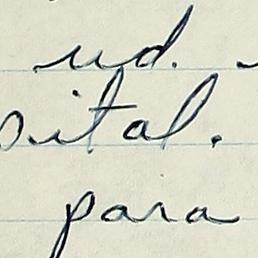 ud.
pital.
para